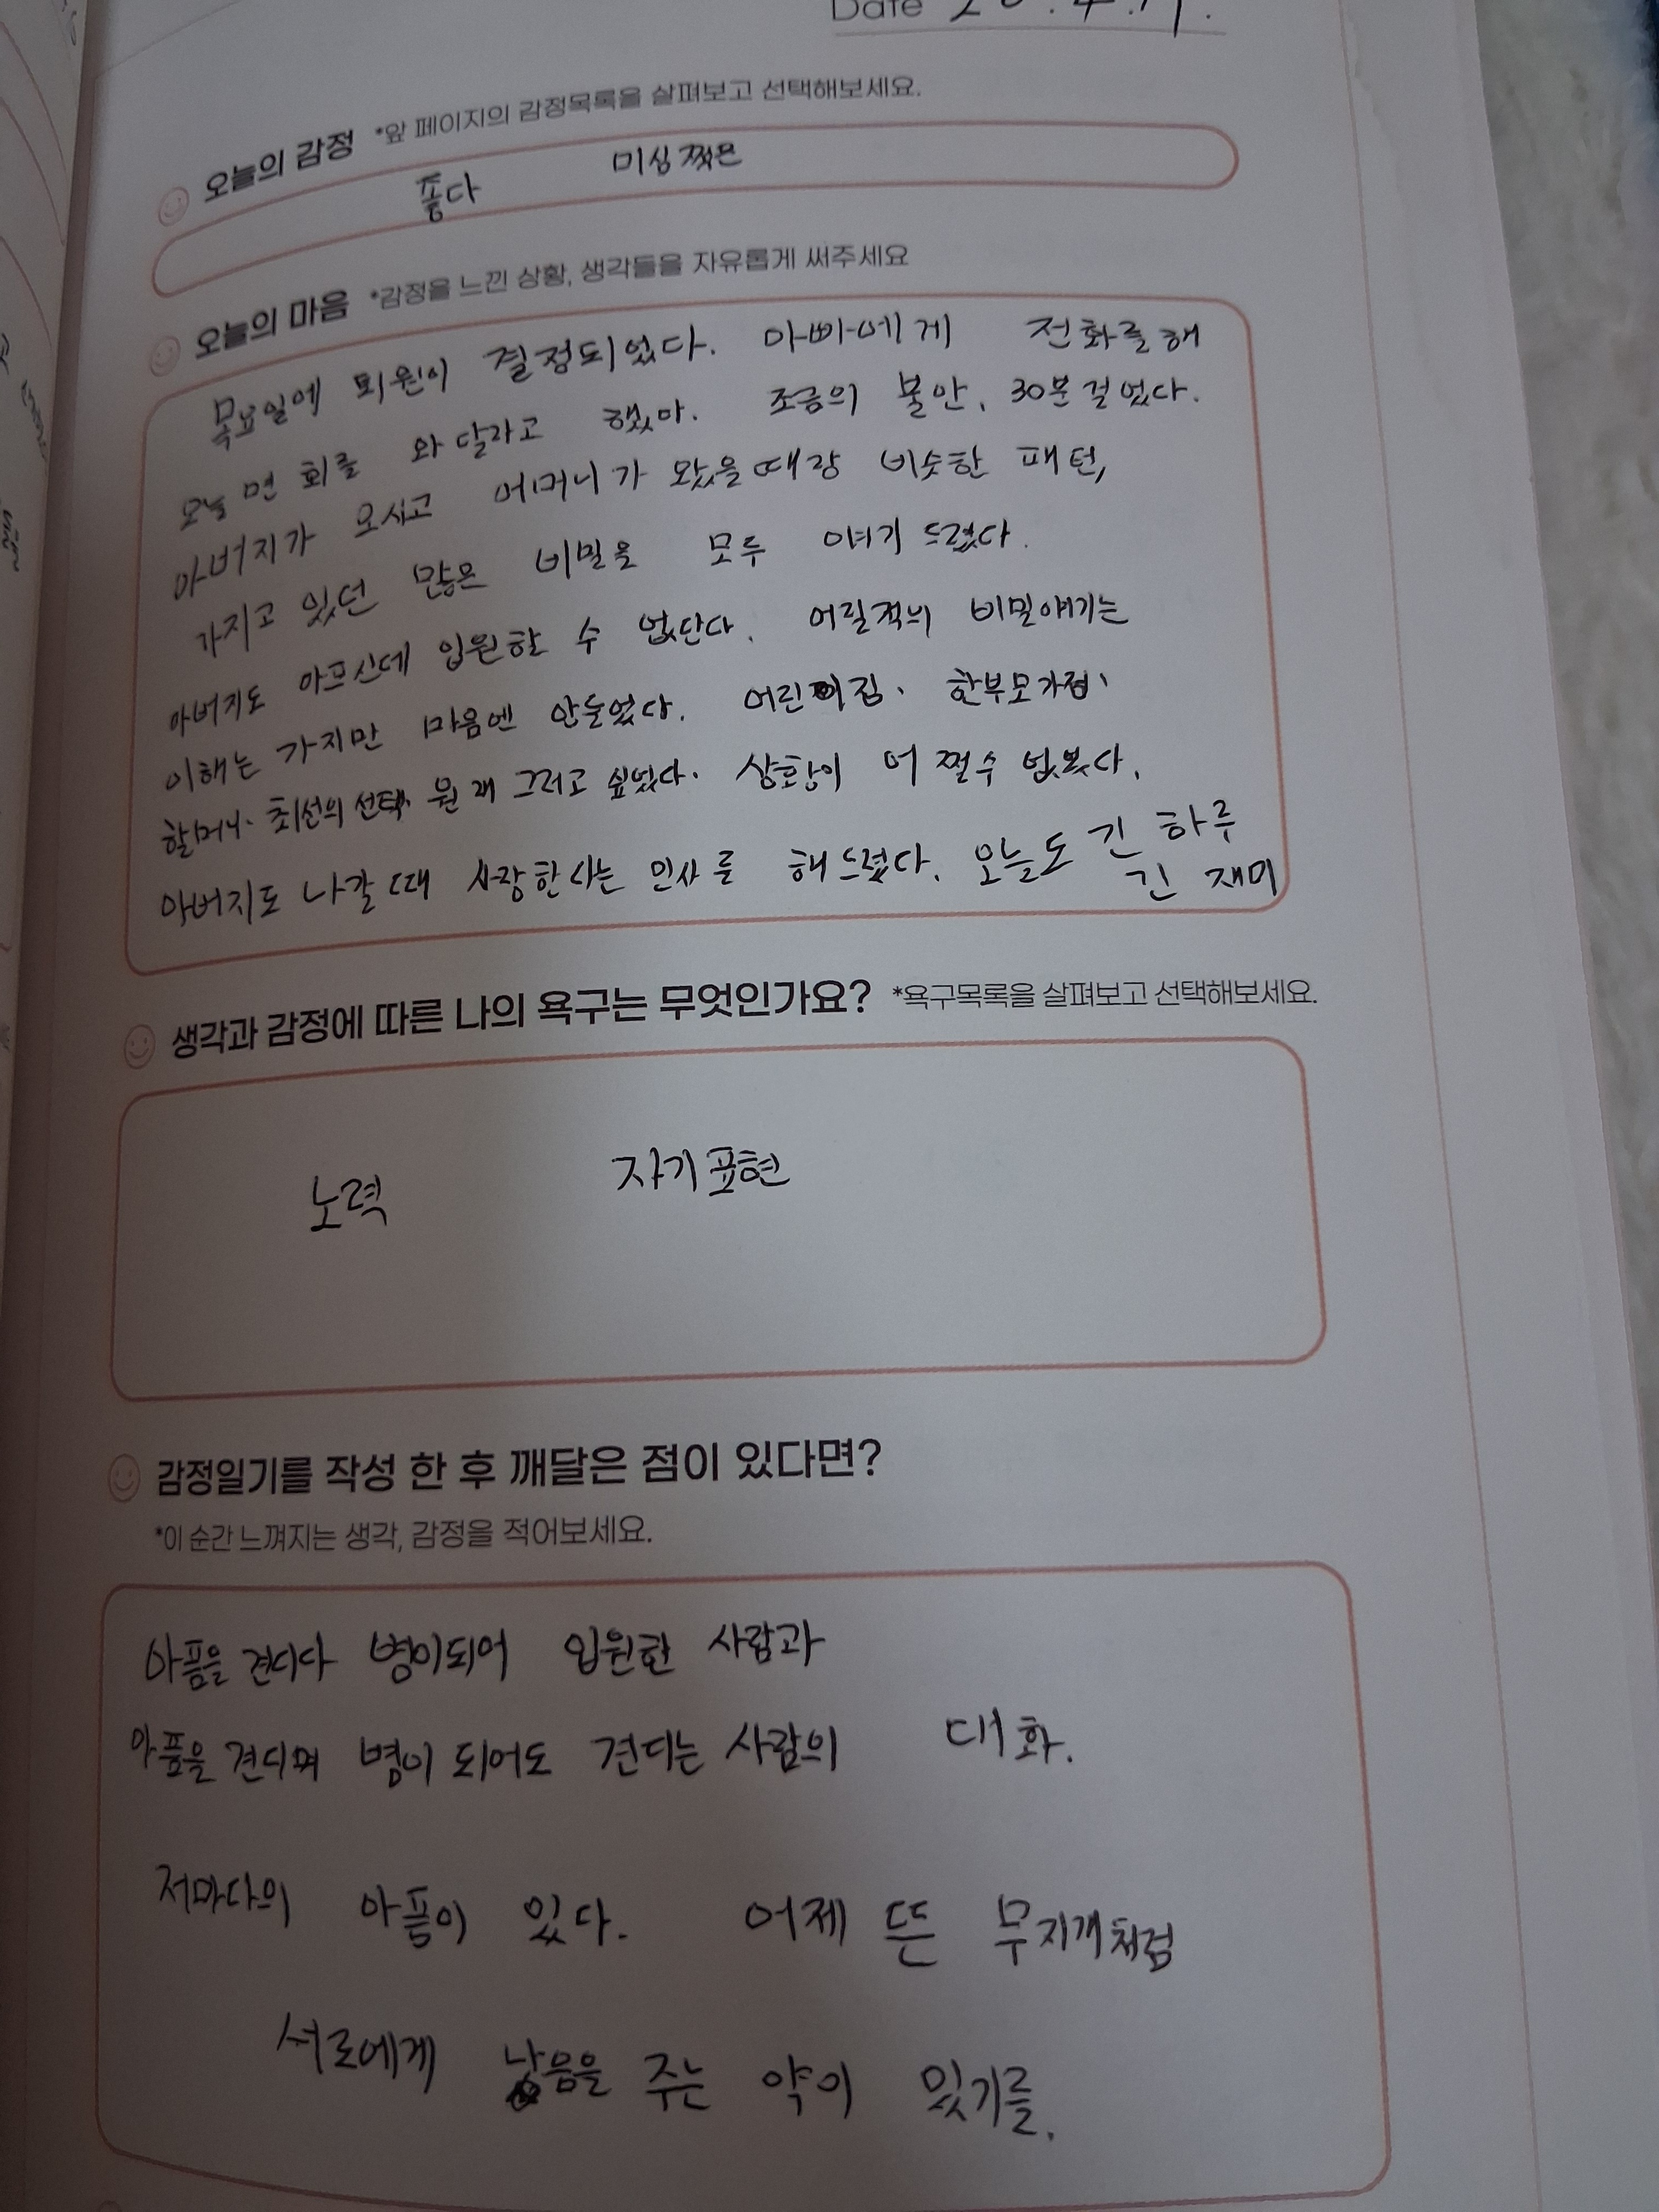 Date
오늘의 감정 *앞 페이지의 감정목록을 살펴보고 선택해보세요.
좋다 미심쩍은
오늘의 마음 *감정을 느낀 상황, 생각들을 자유롭게 써주세요
목요일에 퇴원이 결정되었다. 아빠에게 전화를 해
오늘 면회를 와달라고 했다. 조금의 불안, 30분 걸었다.
아버지가 오시고 어머니가 왔을때랑 비슷한 패턴,
가지고 있던 많은 비밀을 모두 얘기 드렸다.
아버지도 아프신데 입원할 수 없단다. 어릴적의 비밀얘기는
이해는 가지만 마음엔 안들었다. 어린이집. 한부모가정.
할머니. 최선의 선택. 원래 그러고 싶었다. 상황이 어쩔수 없봤다.
아버지도 나갈때 사랑한다는 인사를 해드렸다. 오늘도 긴 하루
긴 재미
생각과 감정에 따른 나의 욕구는 무엇인가요? *욕구목록을 살펴보고 선택해보세요.
노력 자기표현
감정일기를 작성 한 후 깨달은 점이 있다면?
*이 순간 느껴지는 생각, 감정을 적어보세요.
아픔을 견디다 병이되어 입원한 사람과
아픔을 견디며 병이 되어도 견디는 사람의 대화.
저마다의 아픔이 있다. 어제 뜬 무지개처럼
서로에게 낳음을 주는 약이 있기를.